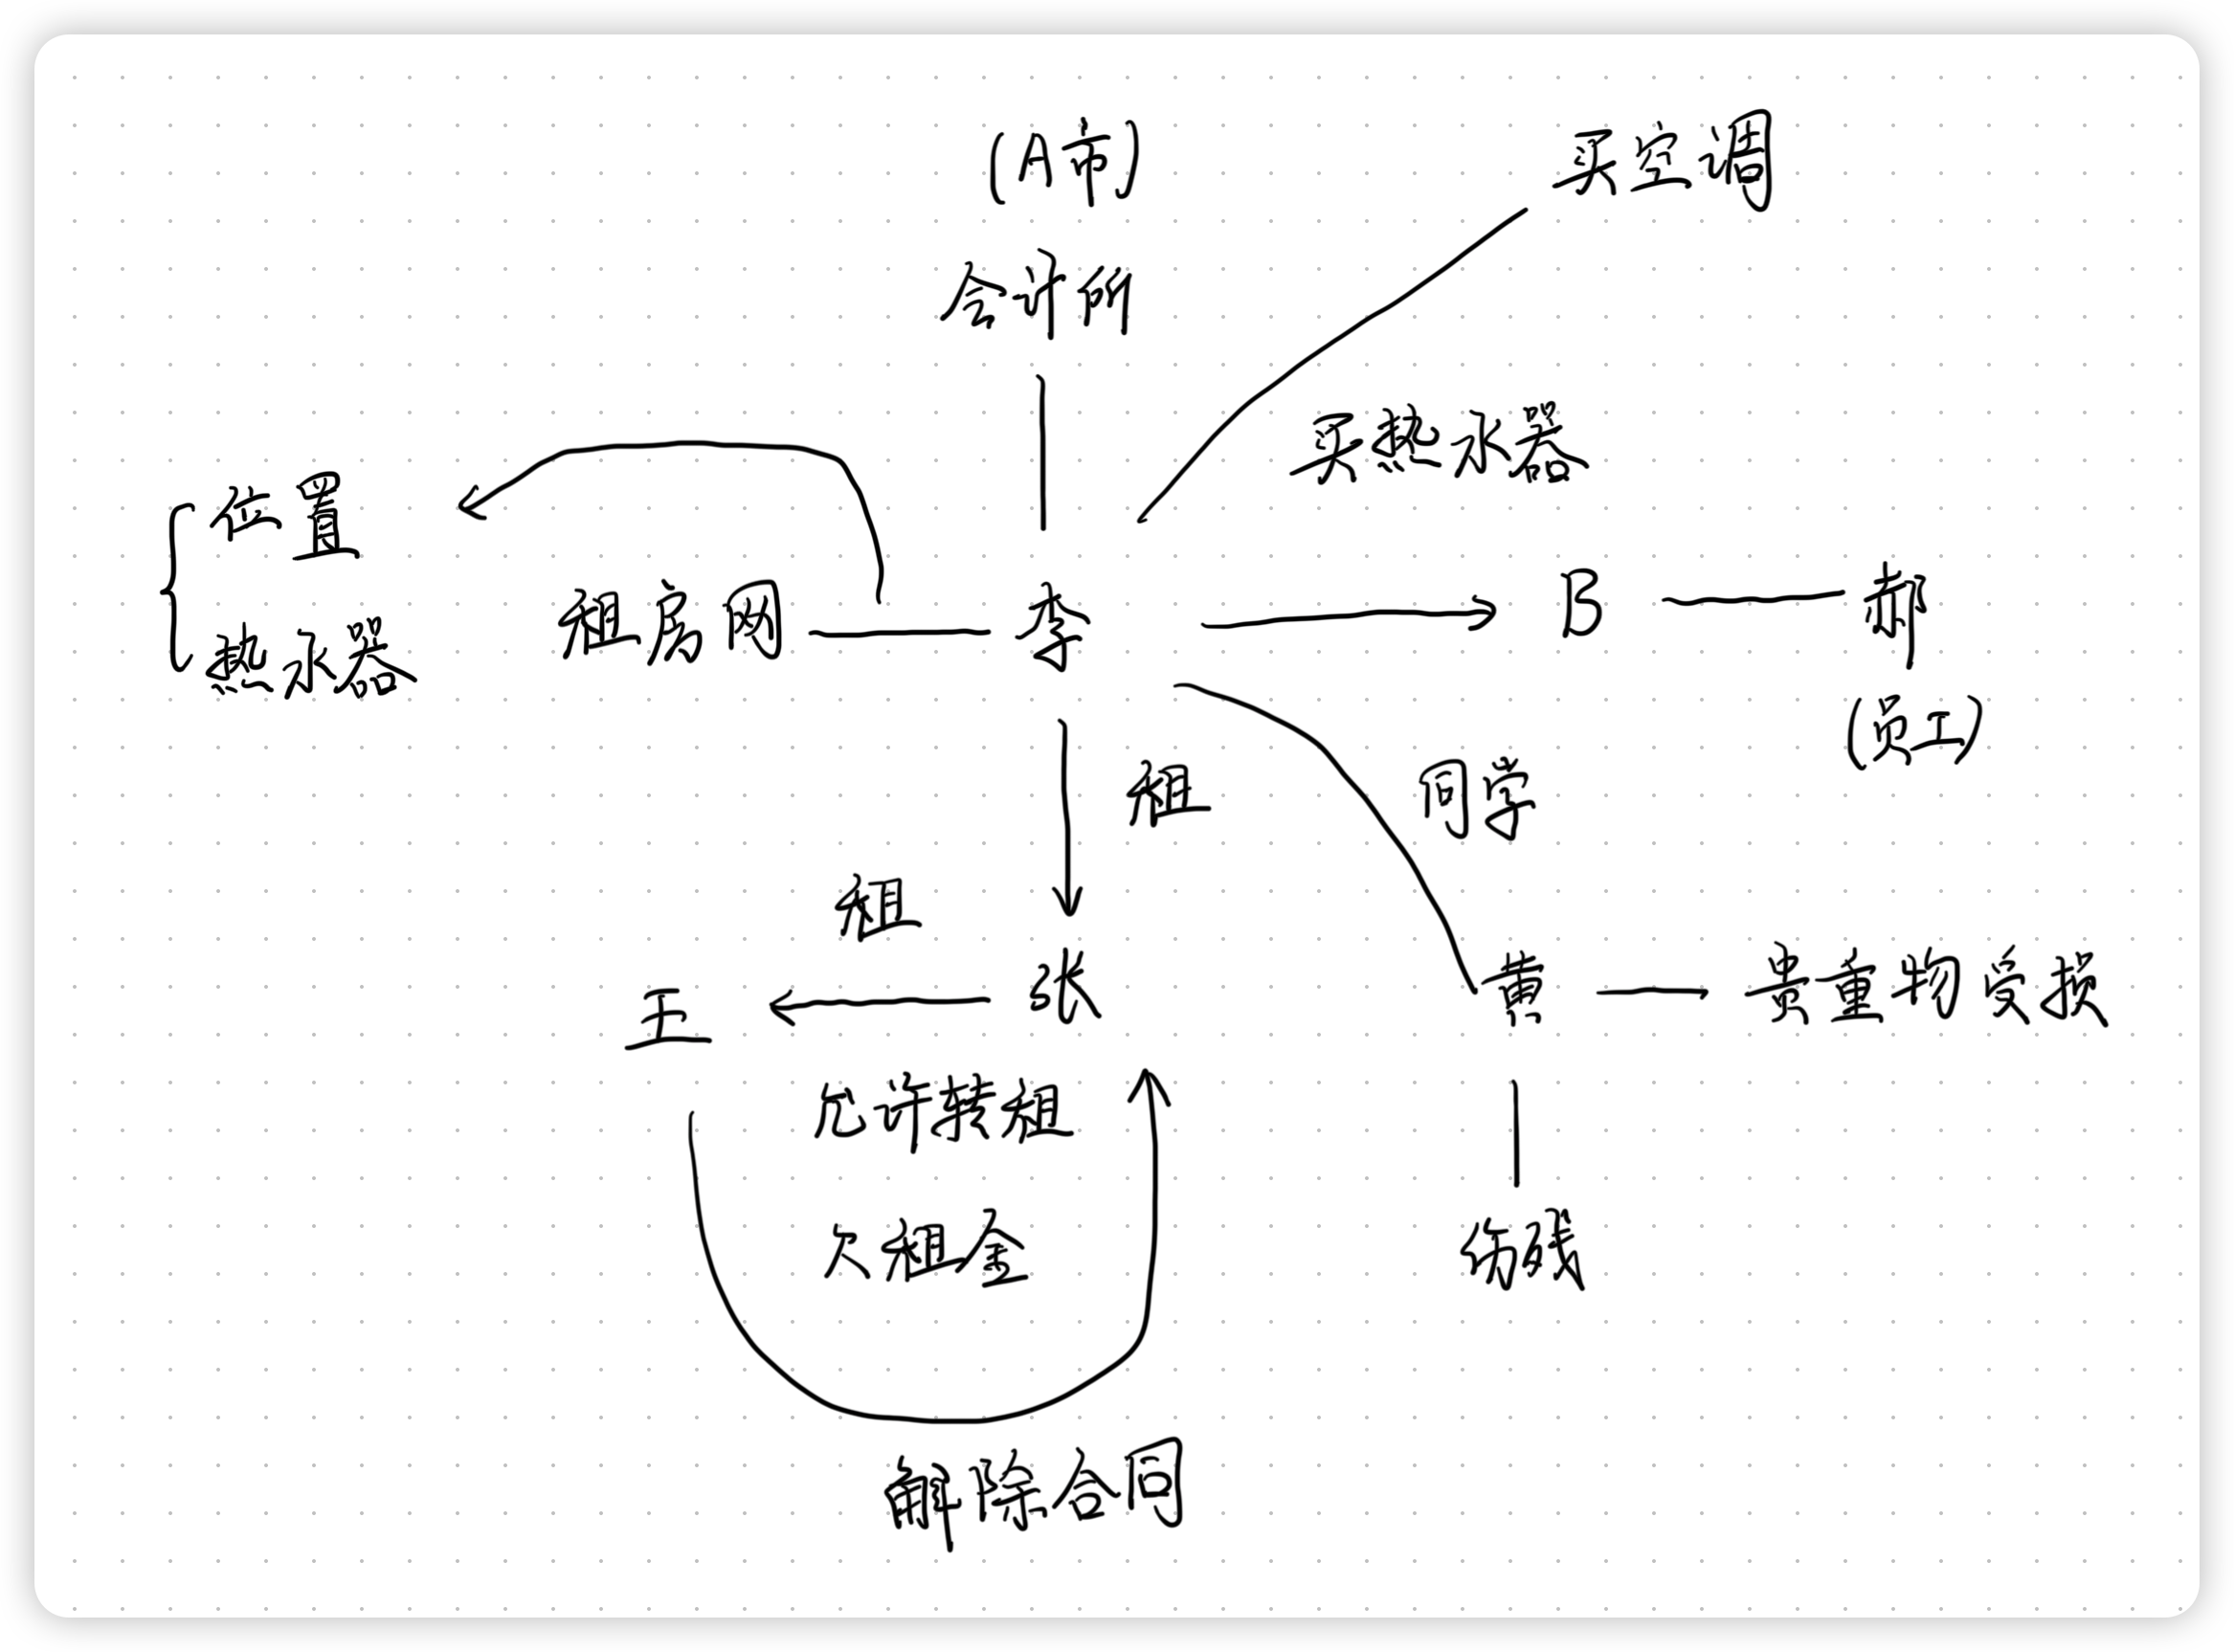 (A市)
买空调
会计所
买热水器
位置
热水器
租房网
李
B
郝
(员工)
租
同学
租
王
张
黄
贵重物受损
允许转租
欠租金
伤残
解除合同